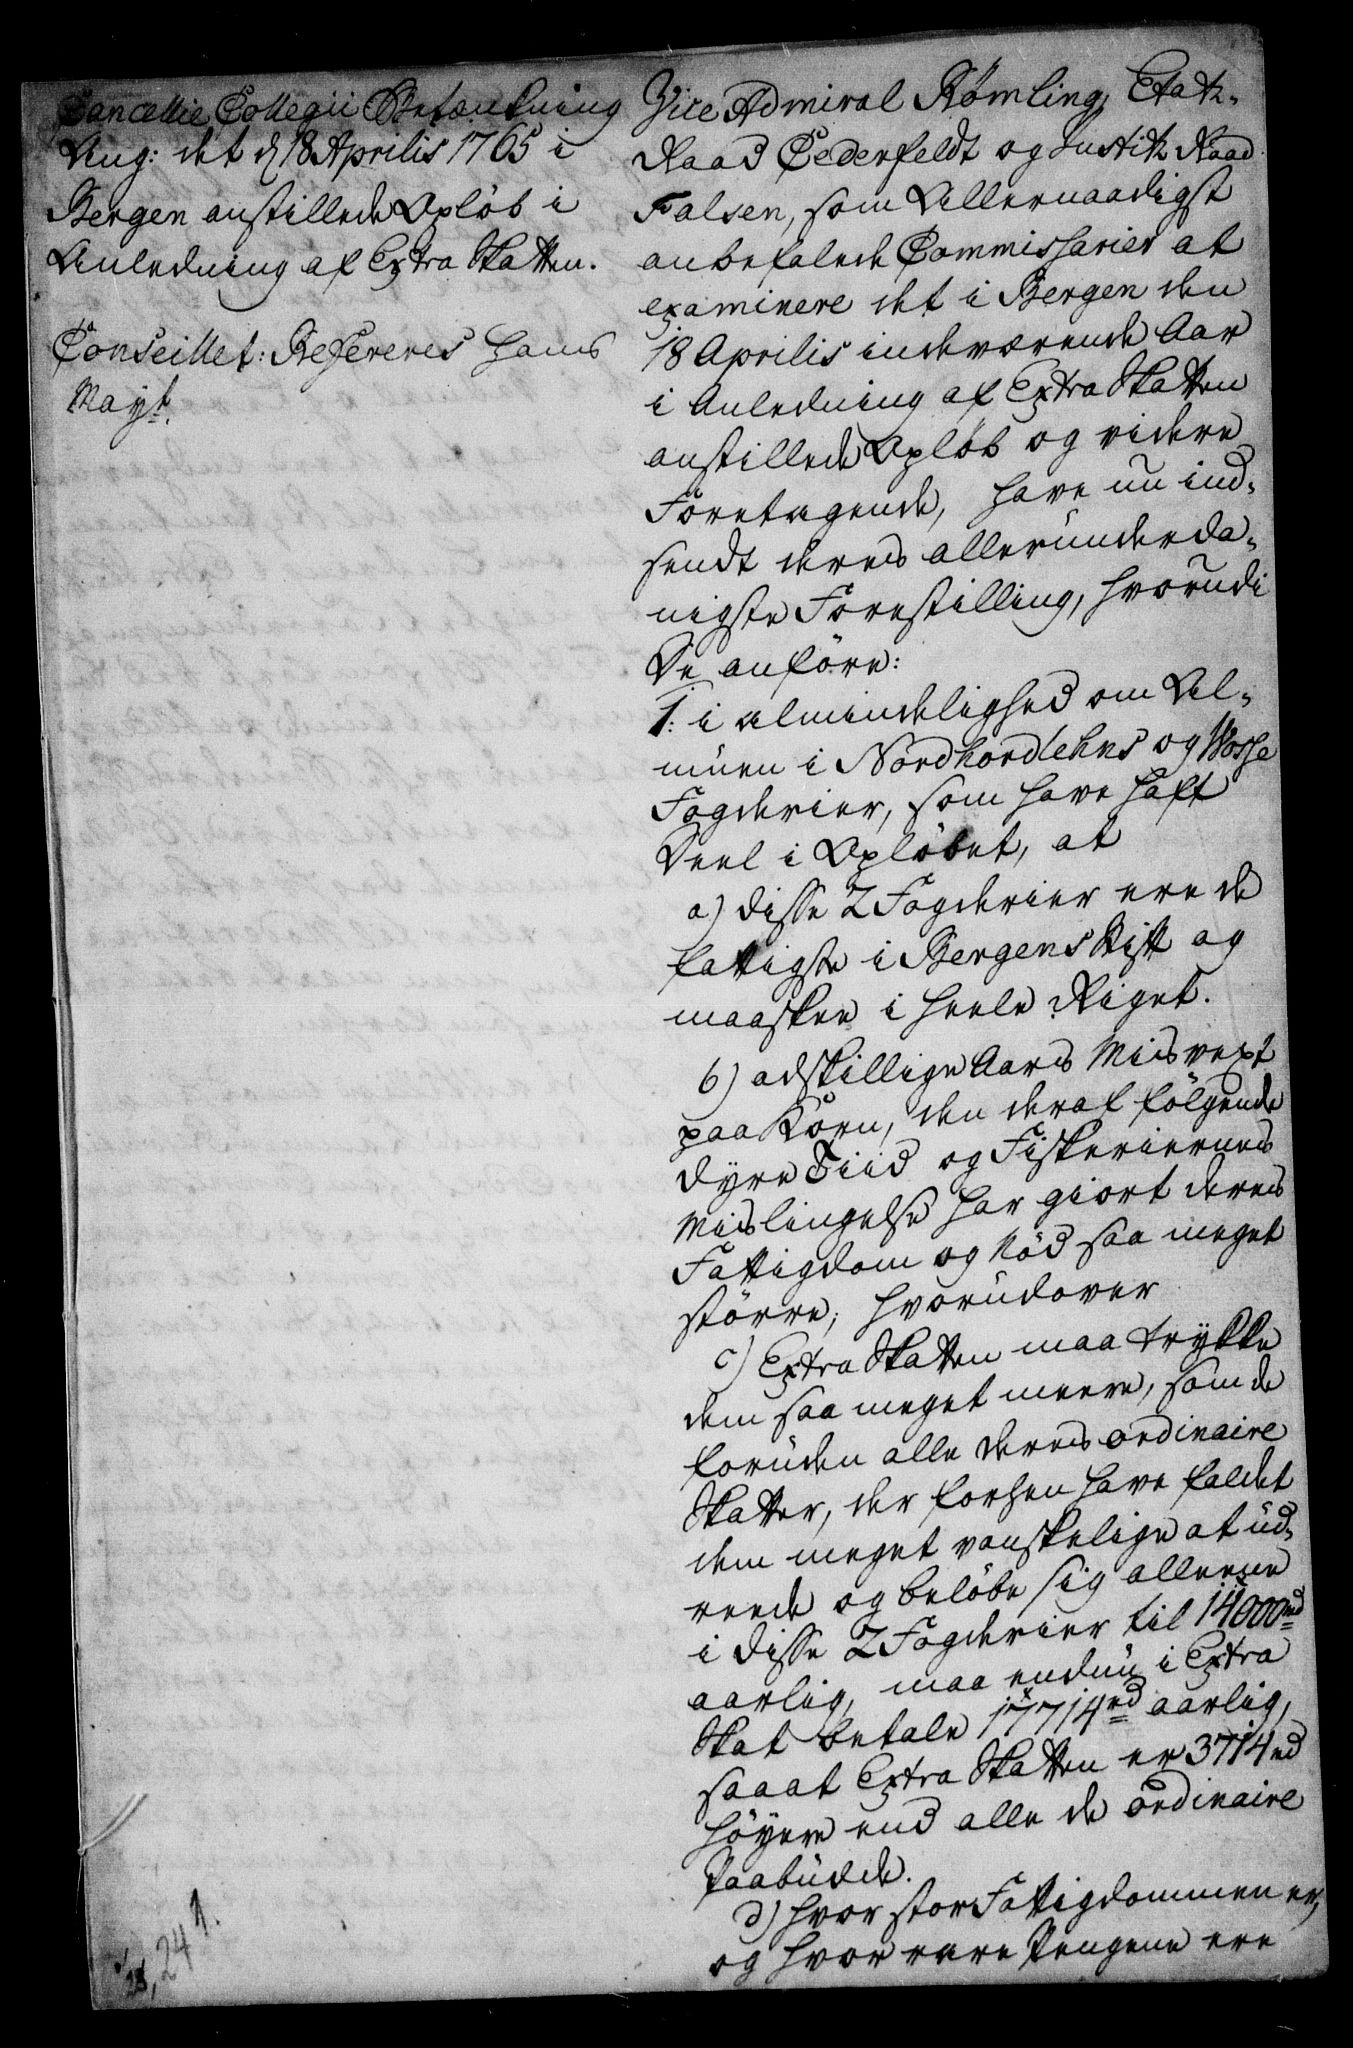 Cancellie Collegii Betænkning
Ang: det d 18 Aprilis 1765 i
Bergen anstillede Opløb i
Anledning af Extra Skatten.
Conseillet: Refereres Hans
Mayt.
Vice Admiral Rømling, Etatz-
Raad Cederfeldt og Justitz Raad
Falsen, som Allernaadigst
anbefalede Commissarier at
examinere det i Bergen den
18 Aprilis indeværende Aar
i Anledning af Extra Skatten
anstillede Opløb og videre
Foretagende, have nu ind-
sendt deres allerunderda-
nigste Forestilling, hvorudi
De anføre:
1: i almindelighed om Al-
muen i Nordhordlehns og Wosse
Fogderier, som have haft
Deel i Opløbet, at
a) disse 2 Fogderier ere de
fattigste i Bergens Stift og
maaskee i heele Riget.
b) adskillige Aars Misvext
paa Korn, den deraf følgende
dyre Tiid og Fiskeriernes
Mislingelse har giort deres
Fattigdom og Nød saa meget
større, hvorudover
c) Extra Skatten maa trykke
dem saa meget meere, som de
foruden alle deres ordinaire
Skatter, der forhen have faldet
dem meget vanskelige at ud-
reede og beløbe sig alleene
i disse 2 Fogderier til 14000 rd
aarlig, maa endnu i Extra
Skat betale 17714 rd aarlig,
saa at Extra Skatten er 3714 rd
høyere end alle de ordinaire
Paabudde.
d) hvor stor Fattigdommen er,
og hvor rare Pengene ere
24 1.